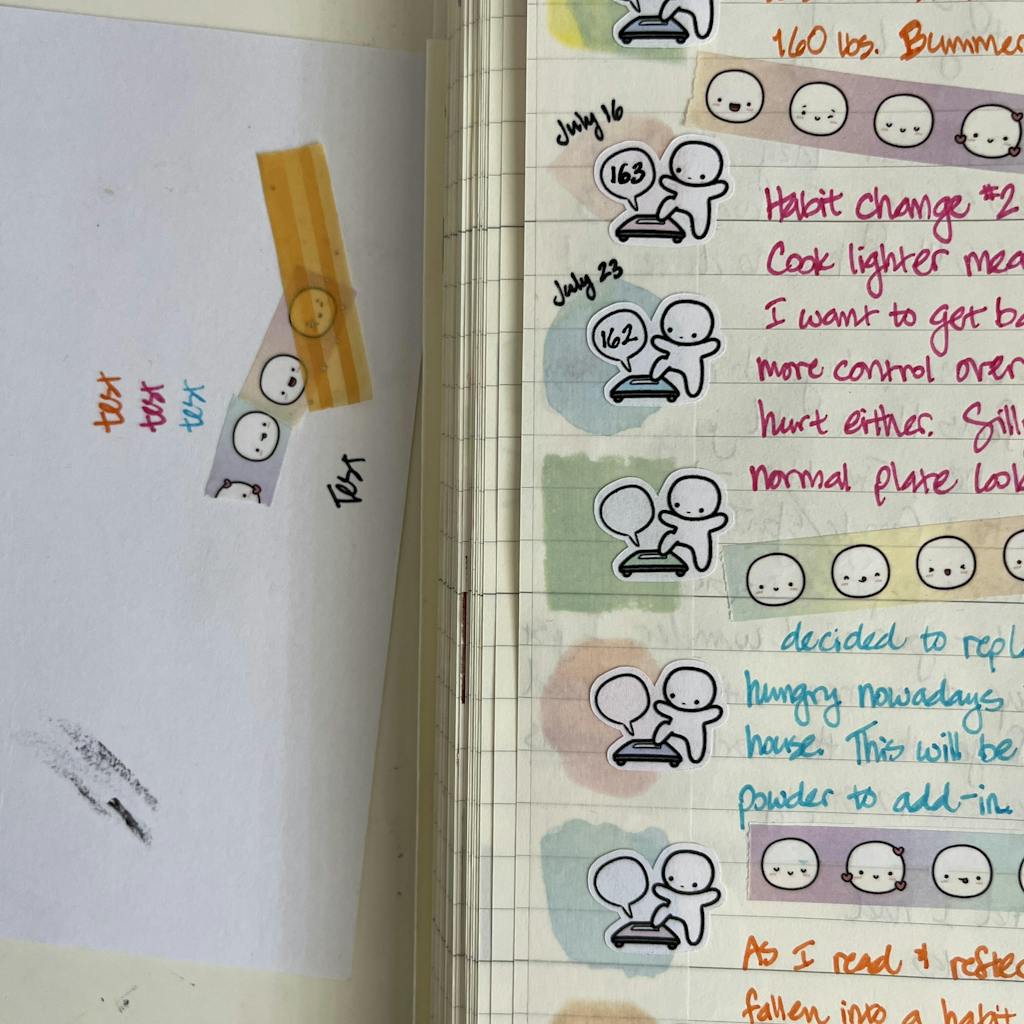 test
test
test
Test
160 lbs. Bummer
July 16
163
Habit change #2
Cook lighter mea
July 23
162
I want to get ba
more control over
hurt either. Silly
normal plate look
decided to repl
hungry nowadays
house. This will be
powder to add-in.
As I read & reflec
fallen into a habit